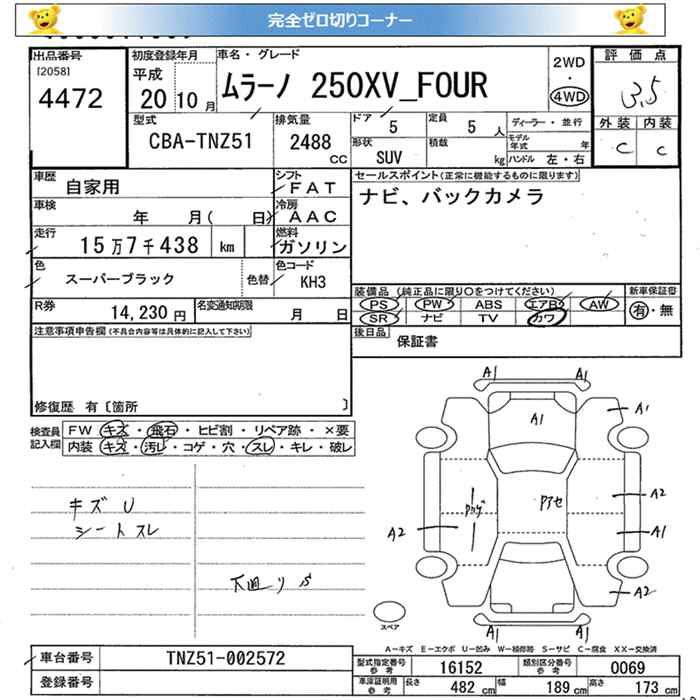 完全ゼロ切りコーナー
出品番号 初度登録年月 車名・グレード 2WD ・ 4WD 評価点
[2058] 4472 平成 20年 10月 ムラーノ 250XV_FOUR 3.5
型式 排気量 ドア 5 定員 5人 ディーラー・並行 外装 内装
CBA-TNZ51 2488 cc 形状 SUV 積載 kg モデル年式 年 ハンドル 左・右 C C
車歴 自家用 シフト FAT セールスポイント(正常に機能するものに限ります)
車検 年 月( 日) 冷房 AAC ナビ、バックカメラ
走行 15万7千438 km 燃料 ガソリン
色 スーパーブラック 色替 色コード KH3
装備品(純正品に限り○をつけてください) 新車保証書
PS PW ABS エアB AW 有・無
SR ナビ TV カワ
R券 14,230円 名変通知期限 月 日
後日品 保証書
注意事項申告欄(不具合内容等は具体的に記入して下さい)
修復歴 有〔箇所 〕
検査員記入欄 FW キズ・飛石・ヒビ割・リペア跡・×要
内装 キズ・汚レ・コゲ・穴・スレ・キレ・破レ
キズ U
シートスレ
下廻り S
A1 A1
A1 A1
A2
A2 A1
A2
A1 A1
スペア
A-キズ E-エクボ U-凹み W-補修跡 S-サビ C-腐食 XX-交換済
車台番号 TNZ51-002572
登録番号
型式指定番号 参考 16152 類別区分番号 参考 0069
車庫証明用 参考 長さ 482cm 幅 189cm 高さ 173cm